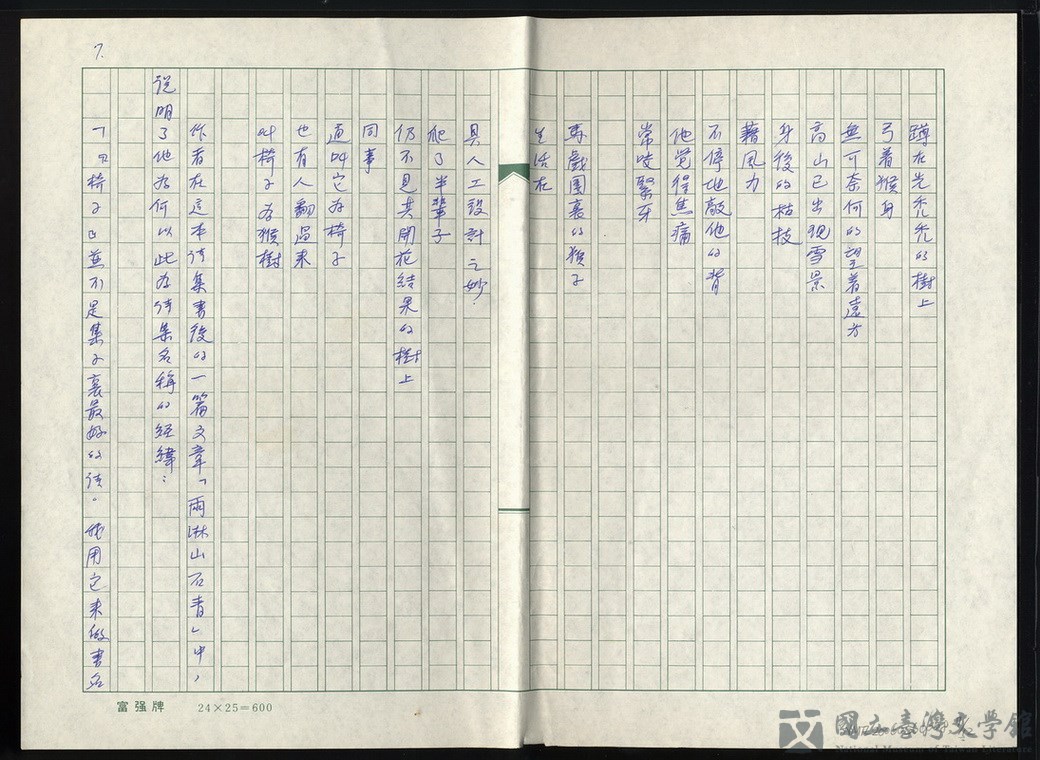 蹲在光禿禿的樹上
弓着猴身
無可奈何的望着遠方
高山已出現雪景
身後的枯枝
藉風力
不停地敲他的背
他覚得焦痛
常咬緊牙
馬戲團裏的猴子
生活在
具人工設計之妙，
爬了半輩子
仍不見其開花結果的樹上
同事
通叫它為椅子
也有人翻過來
叫椅子為猴樹
作者在這本詩集書後的一篇文章「雨淋山石青」中，
說明了他為何以此為詩集名稱的經緯：
「『椅子』並不是集子裏最好的詩。我用它來做書名
7.
富强牌
24×25=600
國立臺灣文學館
National Museum of Taiwan Literature